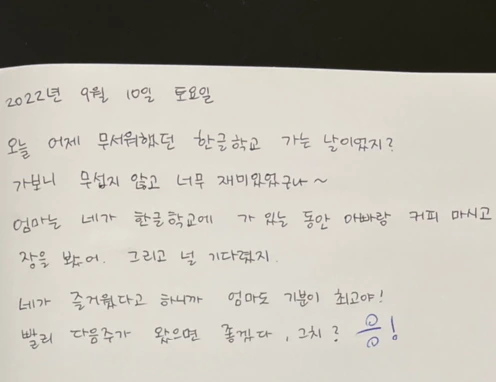 2022년 9월 10일 토요일
오늘 어제 무서워했던 한글학교 가는 날이었지?
가보니 무섭지 않고 너무 재미있었구나~
엄마는 네가 한글학교에 가 있는 동안 아빠랑 커피 마시고
장을 봤어. 그리고 널 기다렸지.
네가 즐거웠다고 하니까 엄마도 기분이 최고야!
빨리 다음주가 왔으면 좋겠다, 그치? 응!